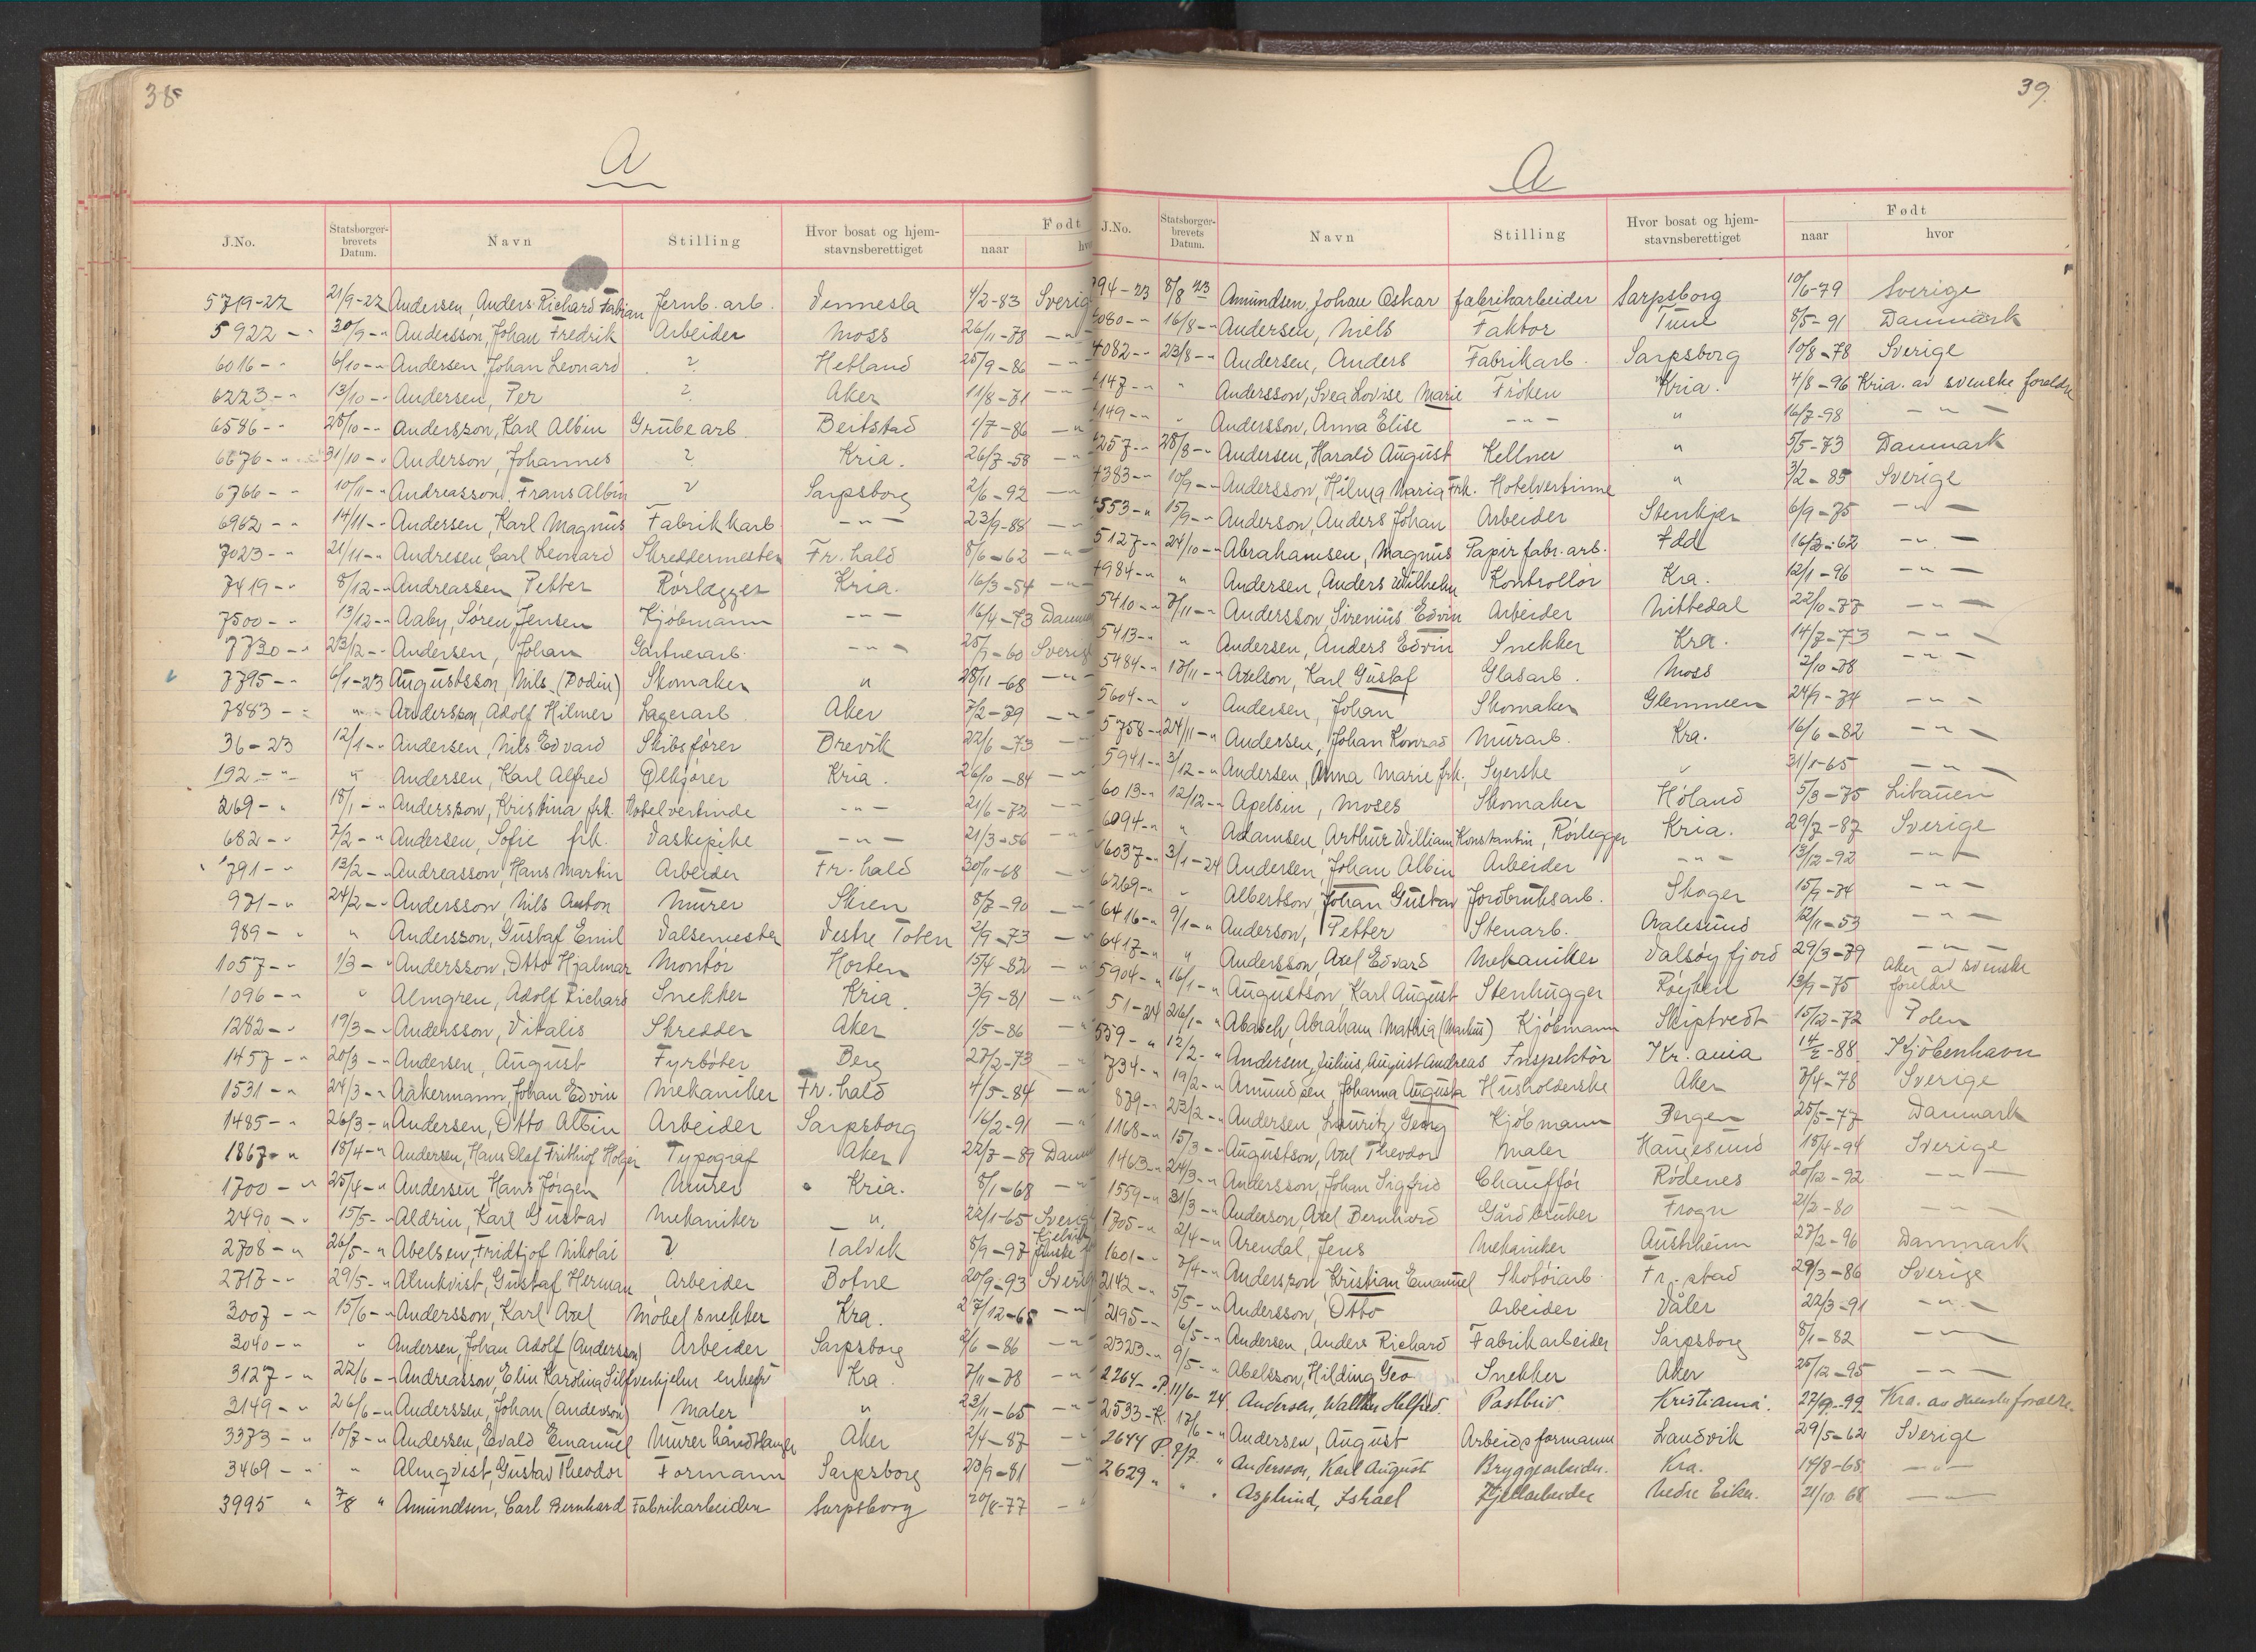 38
A
J.No. Statsborger-brevets Datum. Navn Stilling Hvor bosat og hjem-stavnsberettiget Født naar
5719-22 21/9-22 Andersen, Anders Richard Fabian Jernb. arb. Vennesla 4/2-83 Sverig
5922 -" 30/9-" Andersson, Johan Fredrik Arbeider Moss 26/11-78 -"-
6016 -" 6/10-" Andersen Johan Leonard ? Hetland 25/9-86 -"-
6223 -" 13/10-" Andersen, Per ? Aker 11/8-71 -"-
6586 -" 28/10-" Andersson, Karl Albin Grubearb. Beitstad 1/7-86 -"
6676 -" 31/10-" Anderson, Johannes ? Kria. 26/7-58 -"
6766 -" 10/11-" Andreasson, Frans Albin ? Sarpsborg 2/6-92 -"-
6962 -" 14/11-" Andersen, Karl Magnus Fabrikkarb -"- 23/9-88
7023 -" 21/11-" Andresen, Carl Leonard Skreddermester Fr.hald 8/6-62 -"-
7419 -" 8/12-" Andreassen Petter Rørlegger Kria. 16/3-54 -"-
7500 -" 13/12-" Aaby, Søren Jensen Kjøbmann -"- 16/4-73 Danm
7730 -" 23/12-" Andersen, Johan Gartnerarb. -"- 28/9-60 Sverig
7795 -" 6/1-23 Augustsson, Nils (Bodin) Skomaker " 28/11-68 -"-
7883 -" " Andersson, Adolf Hilmer Lagerarb Aker 7/2-79 -"-
36-23 12/1-" Andersen, Nils Edvard Skibsfører Brevik 22/6-73
192 -" " Andersen, Karl Alfred Ølkjører Kria. 26/10-84 -"
269 -" 18/1-" Andersson, Kristina frk. Hotelvertinde -"- 21/6-72
682 -" 7/2-" Andersen, Sofie frk. Vaskepike -"- 21/3-56
791 -" 13/2-" Andreasson, Hans Martin Arbeider Fr.hald 30/11-68
971 -" 24/2-" Andersson, Nils Anton Murer Skien 8/7-90
989 -" " Andersson, Gustaf Emil Valsemester Vestre Toten 2/9-73
1057 -" 1/3-" Andersson, Otto Hjalmar Montør Horten 15/4-82
1096 -" " Almgren, Adolf Richard Snekker Kria. 3/9-81 -"
1282 -" 19/3-" Andersson, Vitalis Skredder Aker 1/5-86
1457 -" 20/3-" Andersen, August Fyrbøter Berg 27/2-73
1531 -" 24/3-" Aakermann, Johan Edvin Mekaniker Fr.hald 4/5-84
1485 -" 26/3-" Andersen, Otto Albin Arbeider Sarpsborg 16/2-91
1867 -" 18/4-" Andersen, Hans Olaf Frithiof Holger Typograf Aker 22/7-89 Danm
1700 -" 25/4-" Andersen Hans Jørgen Murer Kria. 8/1-68 -"
2490 -" 15/5-" Aldrin, Karl Gustav Mekaniker -"- 22/1-65 Sverig
2708 -" 26/5-" Abelsen, Fridtjof Nikolai ? Talvik 8/9-97 Kjelvik finske
2717 -" 29/5-" Almkvist, Gustaf Herman Arbeider Botne 20/9-93 Sverig
3007 -" 15/6-" Andersson, Karl Axel Møbelsnekker Kra. 27/12-65 -"
3040 -" " Andersen, Johan Adolf (Andersson) Arbeider Sarpsborg 2/6-86 -"
3127 -" 22/6-" Andreasson, Elin Karolina Silfverhjelm enkefr Kra. 7/11-78 -"
3149 -" 26/6-" Anderssen, Johan (Anderson) Maler " 23/11-65 -"
3373 -" 10/7-" Andersen, Evald Emanuel Murerhåndlanger Aker 2/4-87
3469 -" " Almqvist, Gustav Theodor Formann Sarpsborg 23/9-81
3995 " 7/8 " Amundsen, Carl Bernhard Fabrikarbeider Sarpsborg 20/8-77 -"
39.
A
J.No. Statsborger-brevets Datum. Navn Stilling Hvor bosat og hjem-stavnsberettiget Født naar hvor
94-23 8/8 23 Amundsen, Johan Oskar fabrikarbeider Sarpsborg 10/6-79 Sverige
4080 -" 16/8-" Andersen, Niels Faktor Tune 8/5-91 Danmark
4082 -" 23/8-" Andersen, Anders Fabrikarb. Sarpsborg 10/8-78 Sverige
4147 -" " Andersson, Svea Lovise Marie Frøken Kria. 4/8-96 Kria. av svenske foreldre
4149 -" " Andersson, Anna Elise -"- " 16/7-98 -"-
4257 -" 28/8-" Andersen, Harald August Kellner " 5/5-73 Danmark
4383 -" 10/9-" Andersson, Hilma Maria Frk. Hotelvertinne " 3/2-85 Sverige
4553 -" 15/9-" Anderson, Anders Johan Arbeider Stenkjer 6/9-75 -"-
5127 -" 24/10-" Abrahamsen, Magnus Papirfabr.arb. Fdd 16/2-62 -"-
4984 -" " Andersen, Anders Wilhelm Kontrollør Kra. 12/1-96 -"-
5410 -" 7/11-" Andersson, Sirenius Edvin Arbeider Nittedal 22/10-77 -"-
5413 -" " Andersen, Anders Edvin Snekker Kra. 14/7-73 -"-
5484 -" 17/11-" Axelson, Karl Gustaf Glasarb. Moss 2/10-78 -"-
5604 -" " Andersen, Johan Skomaker Glemmen 24/9-74 -"-
5758 -" 24/11-" Andersen, Johan Konrad Murarb. Kra. 16/6-82 -"-
5941 -" 3/12-" Andersen, Anna Marie frk. Syerske " 31/1-65 -"-
6013 -" 12/12-" Apelsin, Moses Skomaker Høland 5/3-75 Litauen
6094 -" " Adamsen, Arthur William Konstantin, Rørlegger Kria. 29/7-87 Sverige
6037 -" 3/1-24 Andersen, Johan Albin Arbeider -"- 13/12-92 -"-
6269 -" " Albertson, Johan Gustav Jordbruksarb. Skoger 15/9-74 -"-
6416 -" 9/1-" Anderson, Petter Stenarb. Aalesund 12/11-53 -"-
6417 -" " Andersson, Axel Edvard Mekaniker Valsøyfjord 29/3-79 -"-
5904 -" 16/1-" Augustson, Karl August Stenhugger Røyken 13/9-75 Aker av svenske foreldre
51-24 26/1-" Abasch, Abraham Mathia (Markus) Kjøbmann Skiptvedt 15/12-72 Polen
559 -" 12/2-" Andersen, Julius, August Andreas Inspektør Kr.ania 14/2-88 Kjøbenhavn
734 -" 19/2-" Amundsen, Johanna Augusta Husholderske Aker 7/4-78 Sverige
879 -" 22/2-" Andersen, Lauritz Georg Kjøbmann Bergen 25/5-77 Danmark
1168 -" 15/3-" Augustson, Axel Theodor Maler Haugesund 18/4-94 Sverige
1463 -" 24/3-" Andersson, Johan Sigfrid Chauffør Rødenes 20/12-92 -"-
1559 -" 31/3-" Anderson, Axel Bernhard Gårdbruker Frogn 21/2-80 -"-
1705 -" 2/4-" Arendal, Jens Mekaniker Austrheim 27/2-96 Danmark
1601 -" 7/4-" Andersson, Kristian Emanuel Skotøiarb. Fr.stad 29/3-86 Sverige
2142 -" 5/5-" Andersson, Otto Arbeider Våler 22/3-91 -"-
2195 -" 6/5-" Andersen, Anders Richard Fabrikarbeider Sarpsborg 8/1-82 -"-
2323 -" 9/5-" Abelsson, Hilding Geo Snekker Aker 25/12-95 -"-
2264 -"P. 11/6-24 Andersen, Walther Helfred. Postbud Kristiania. 27/9-99 Kra. av svenske foreldre.
2533-K. 17/6-" Andersen, August Arbeidsformann Landvik 29/5-62 Sverige
2644 P. 7/7 " Andersson, Karl August Bryggearbeider. Kra. 14/8-68 -"-
2629 " " " Asplund, Israel Kjellarbeider Nedre Eiker. 21/10 68 -"-